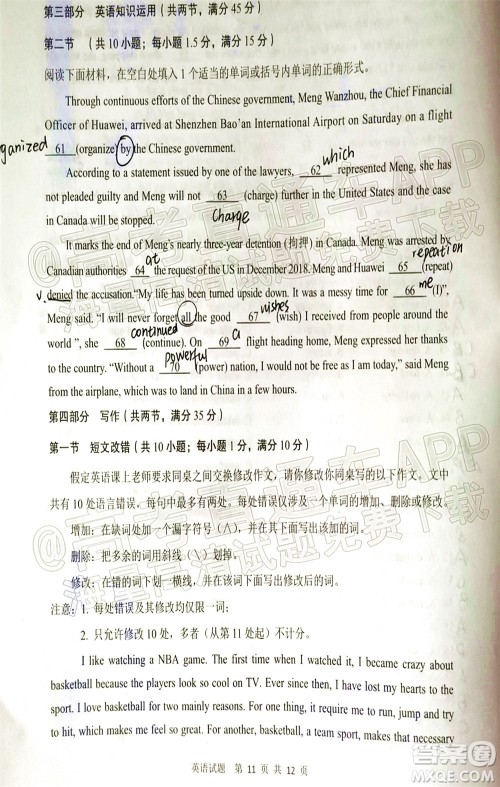 第三部分 英语知识运用（共两节，满分 45 分）
第二节 （共 10 小题；每小题 1.5 分，满分 15 分）
阅读下面材料，在空白处填入 1 个适当的单词或括号内单词的正确形式。
Through continuous efforts of the Chinese government, Meng Wanzhou, the Chief Financial
Officer of Huawei, arrived at Shenzhen Bao'an International Airport on Saturday on a flight
ganized 61 (organize) by the Chinese government.
which
According to a statement issued by one of the lawyers, 62 represented Meng, she has
not pleaded guilty and Meng will not 63 (charge) further in the United States and the case
charge
in Canada will be stopped.
It marks the end of Meng's nearly three-year detention (拘押) in Canada. Meng was arrested by
at repeation
Canadian authorities 64 the request of the US in December 2018. Meng and Huawei 65 (repeat)
v. denied the accusation."My life has been turned upside down. It was a messy time for 66 me (I)",
wishes
Meng said. "I will never forget all the good 67 (wish) I received from people around the
continued a
world ", she 68 (continue). On 69 flight heading home, Meng expressed her thanks
powerful
to the country. "Without a 70 (power) nation, I would not be free as I am today," said Meng
from the airplane, which was to land in China in a few hours.
第四部分 写作（共两节，满分 35 分）
第一节 短文改错（共 10 小题；每小题 1 分，满分 10 分）
假定英语课上老师要求同桌之间交换修改作文，请你修改你同桌写的以下作文。文中
共有 10 处语言错误，每句中最多有两处。每处错误仅涉及一个单词的增加、删除或修改。
增加：在缺词处加一个漏字符号（∧），并在其下面写出该加的词。
删除：把多余的词用斜线（\）划掉。
修改：在错的词下划一横线，并在该词下面写出修改后的词。
注意：1. 每处错误及其修改均仅限一词；
2. 只允许修改 10 处，多者（从第 11 处起）不计分。
I like watching a NBA game. The first time when I watched it, I became crazy about
basketball because the players look so cool on TV. Every time, I lost my hearts to the
sport. I love basketball for two mainly reasons. For one thing, it require me to run, jump and
to hit, which makes me feel so great. For another, basketball, a team sport, makes necessary
英语试题 第 11 页 共 12 页
@高考直通车APP
海量高清试题免费下载
@高考直通车APP
海量高清试题免费下载
答案圈
MXQE.COM